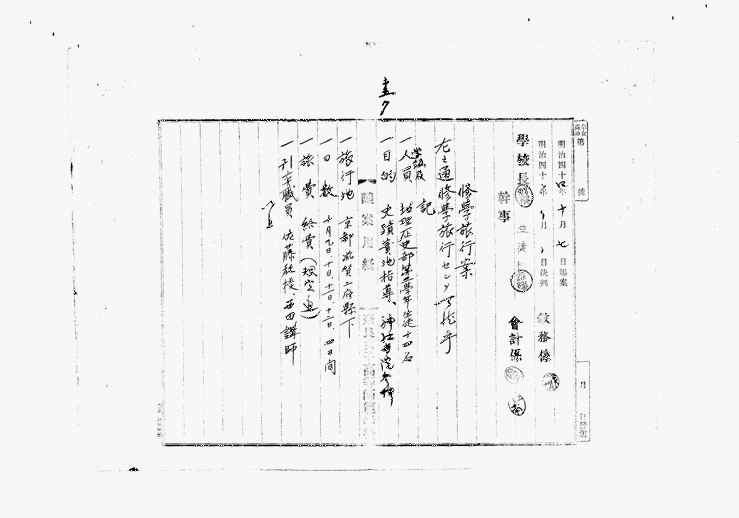 第 號
明治四十四年十月七日起案
明治四十 年 月 日決判
教務係
學校長
生徒
會計係
幹事
修學旅行案
左之通修學旅行セシメ可然乎
記
一 人員 地理歴史部第三學年生徒十四名
學級及
一 目的 史蹟實地指導、神社寺院参拝
議案用紙
奈良女子高等師範學校
一 旅行地 京都滋賀二府縣下
一 日數 十月九日、十日、十一日、十二日、四日間
一 旅費 給費(規定通)
一 引率職員 佐藤教授、西田講師
以上
月 日